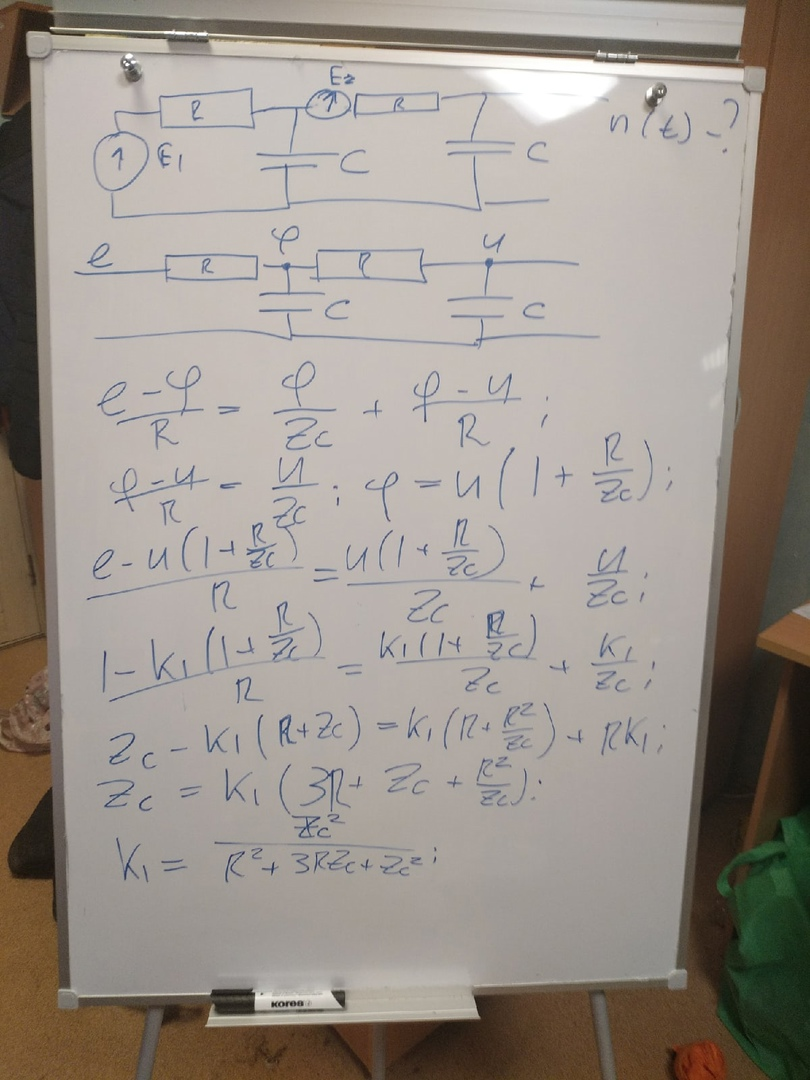 E₂
R R u(t) - ?
E₁ C C
e φ u
R R
C C
(e - φ)/R = φ/Zc + (φ - u)/R ;
(φ - u)/R = u/Zc ; φ = u(1 + R/Zc) ;
(e - u(1 + R/Zc))/R = u(1 + R/Zc)/Zc + u/Zc ;
(1 - K₁(1 + R/Zc))/R = K₁(1 + R/Zc)/Zc + K₁/Zc ;
Zc - K₁(R + Zc) = K₁(R + R²/Zc) + RK₁ ;
Zc = K₁(3R + Zc + R²/Zc) ;
K₁ = Zc²/(R² + 3RZc + Zc²) ;
kores